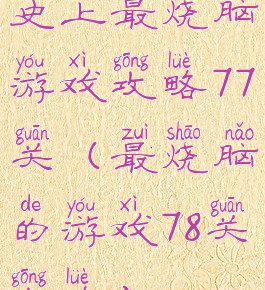 史上最烧脑
yóu xì gōng lüè
游戏攻略77
guān zuì shāo nǎo
关（最烧脑
de yóu xì guān
的游戏78关
gōng lüè